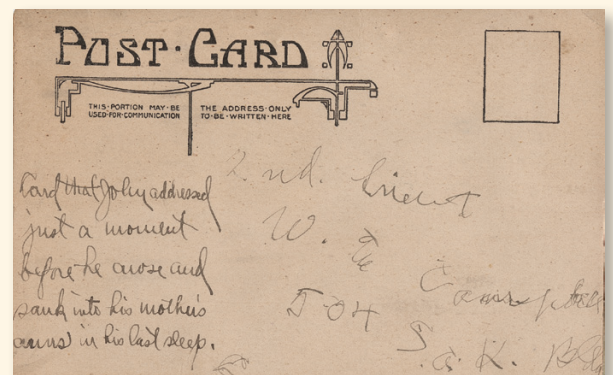 POST·CARD
THIS·PORTION MAY·BE
USED·FOR·COMMUNICATION
THE ADDRESS·ONLY
TO·BE·WRITTEN·HERE
Card that John addressed
just a moment
before he arose and
sank into his mother's
arms) in his last sleep.
2 nd. Lieut
W.
Campbell
504